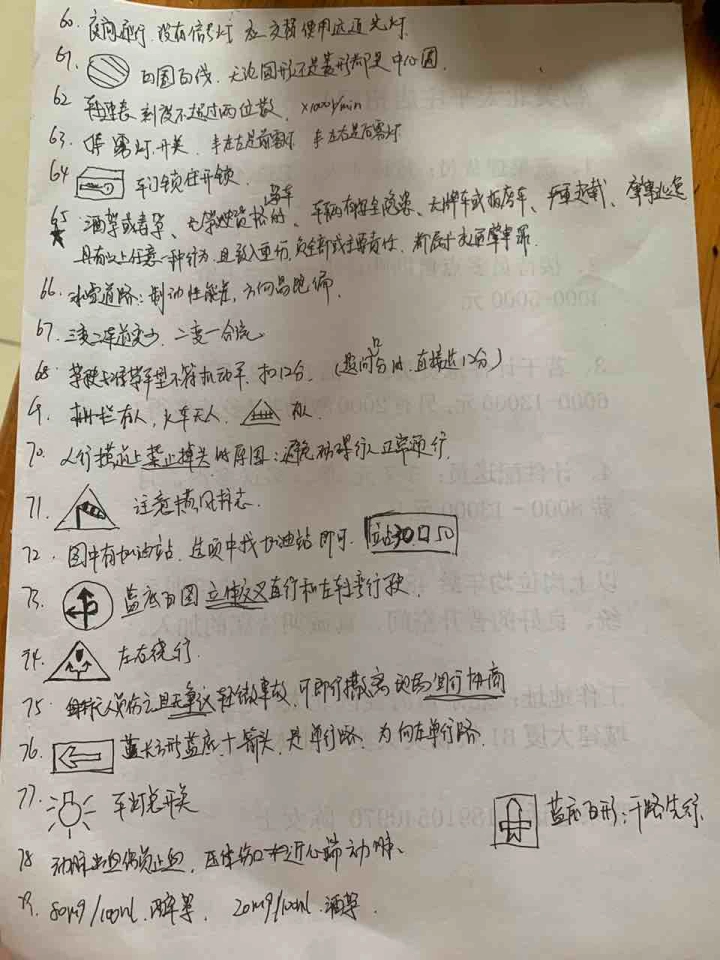 60. 夜间通行, 没有信号灯 应交替使用远近光灯.
61. 白圈白线. 无论圆形还是菱形都是中心圈.
62 转速表 刻度不超过两位数. x1000r/min
63. 雾灯开关. 半左左是前雾灯 半左右是后雾灯
64 车门锁住开锁.
65 酒驾或毒驾、无驾驶资格的、车辆有安全隐患、无牌车或报废车、严重超载、肇事逃逸
具有以上任意一种行为, 且致人重伤, 负全部或主要责任, 都属于交通肇事罪.
66. 冰雪道路: 制动性能差, 方向易跑偏.
67. 三变二车道变少. 二变一合流
68. 驾驶与准驾车型不符机动车. 扣12分. (是问扣分时, 直接选12分)
69. 栅栏有人, 火车无人. 有人
70. 人行横道上禁止掉头的原因: 避免妨碍行人正常通行.
71. 注意横风标志.
72. 图中有加油站. 选项中找加油站即可.
73. 蓝底白图 立体交叉直行和左转弯行驶.
74. 左右绕行.
75. 无人员伤亡且无争议轻微事故, 可即行撤离现场自行协商
76. 蓝长方形蓝底, 十箭头, 是单行路. 为向左单行路.
77. 车灯总开关
蓝底白形: 干路先行.
78 动脉出血 止血, 压住伤口 近心端动脉.
79. 80mg/100ml. 醉驾. 20mg/100ml. 酒驾.